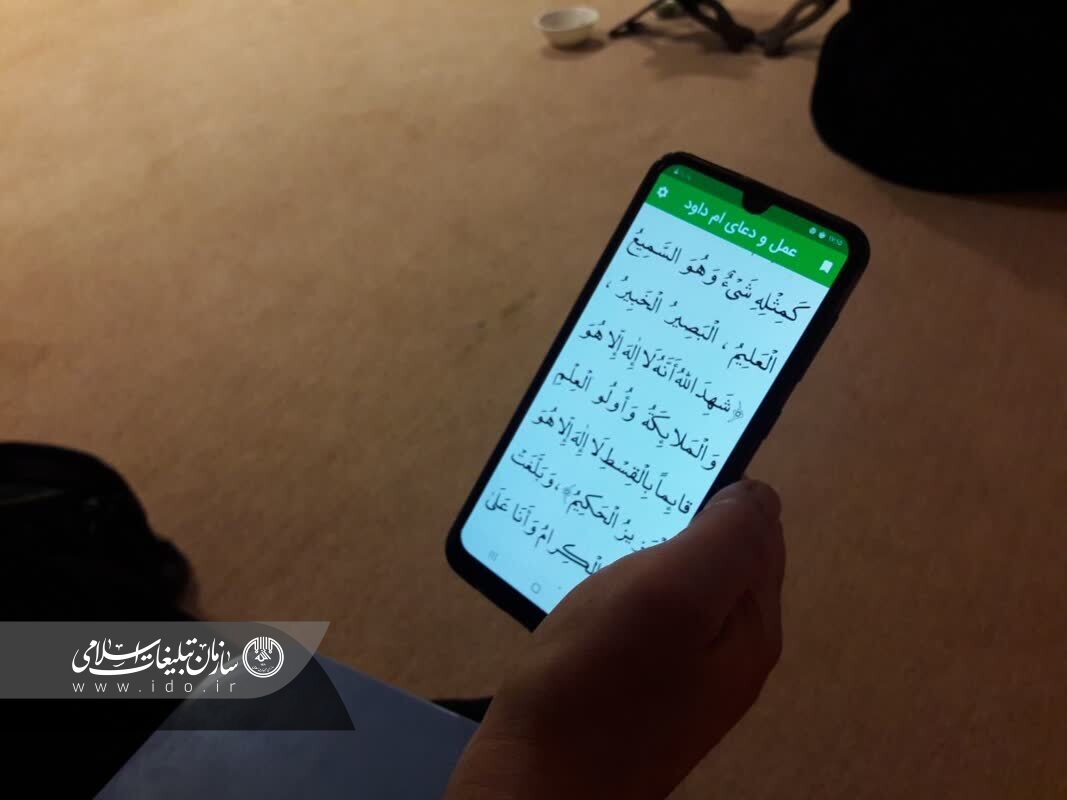 عمل و دعای ام داود
كَمِثْلِهِ شَيْءٌ وَهُوَ السَّمِيعُ
الْعَلِيمُ ، الْبَصِيرُ الْخَبِيرُ ،
﴿شَهِدَ اللّٰهُ أَنَّهُ لَا إِلٰهَ إِلَّا هُوَ
وَالْمَلَائِكَةُ وَأُولُو الْعِلْمِ
قَائِماً بِالْقِسْطِ لَا إِلٰهَ إِلَّا هُوَ
الْحَكِيمُ﴾، وَبَلَّغَتْ
الْكِرامُ وَأَنَا عَلىٰ
سازمان تبلیغات اسلامی
www.ido.ir